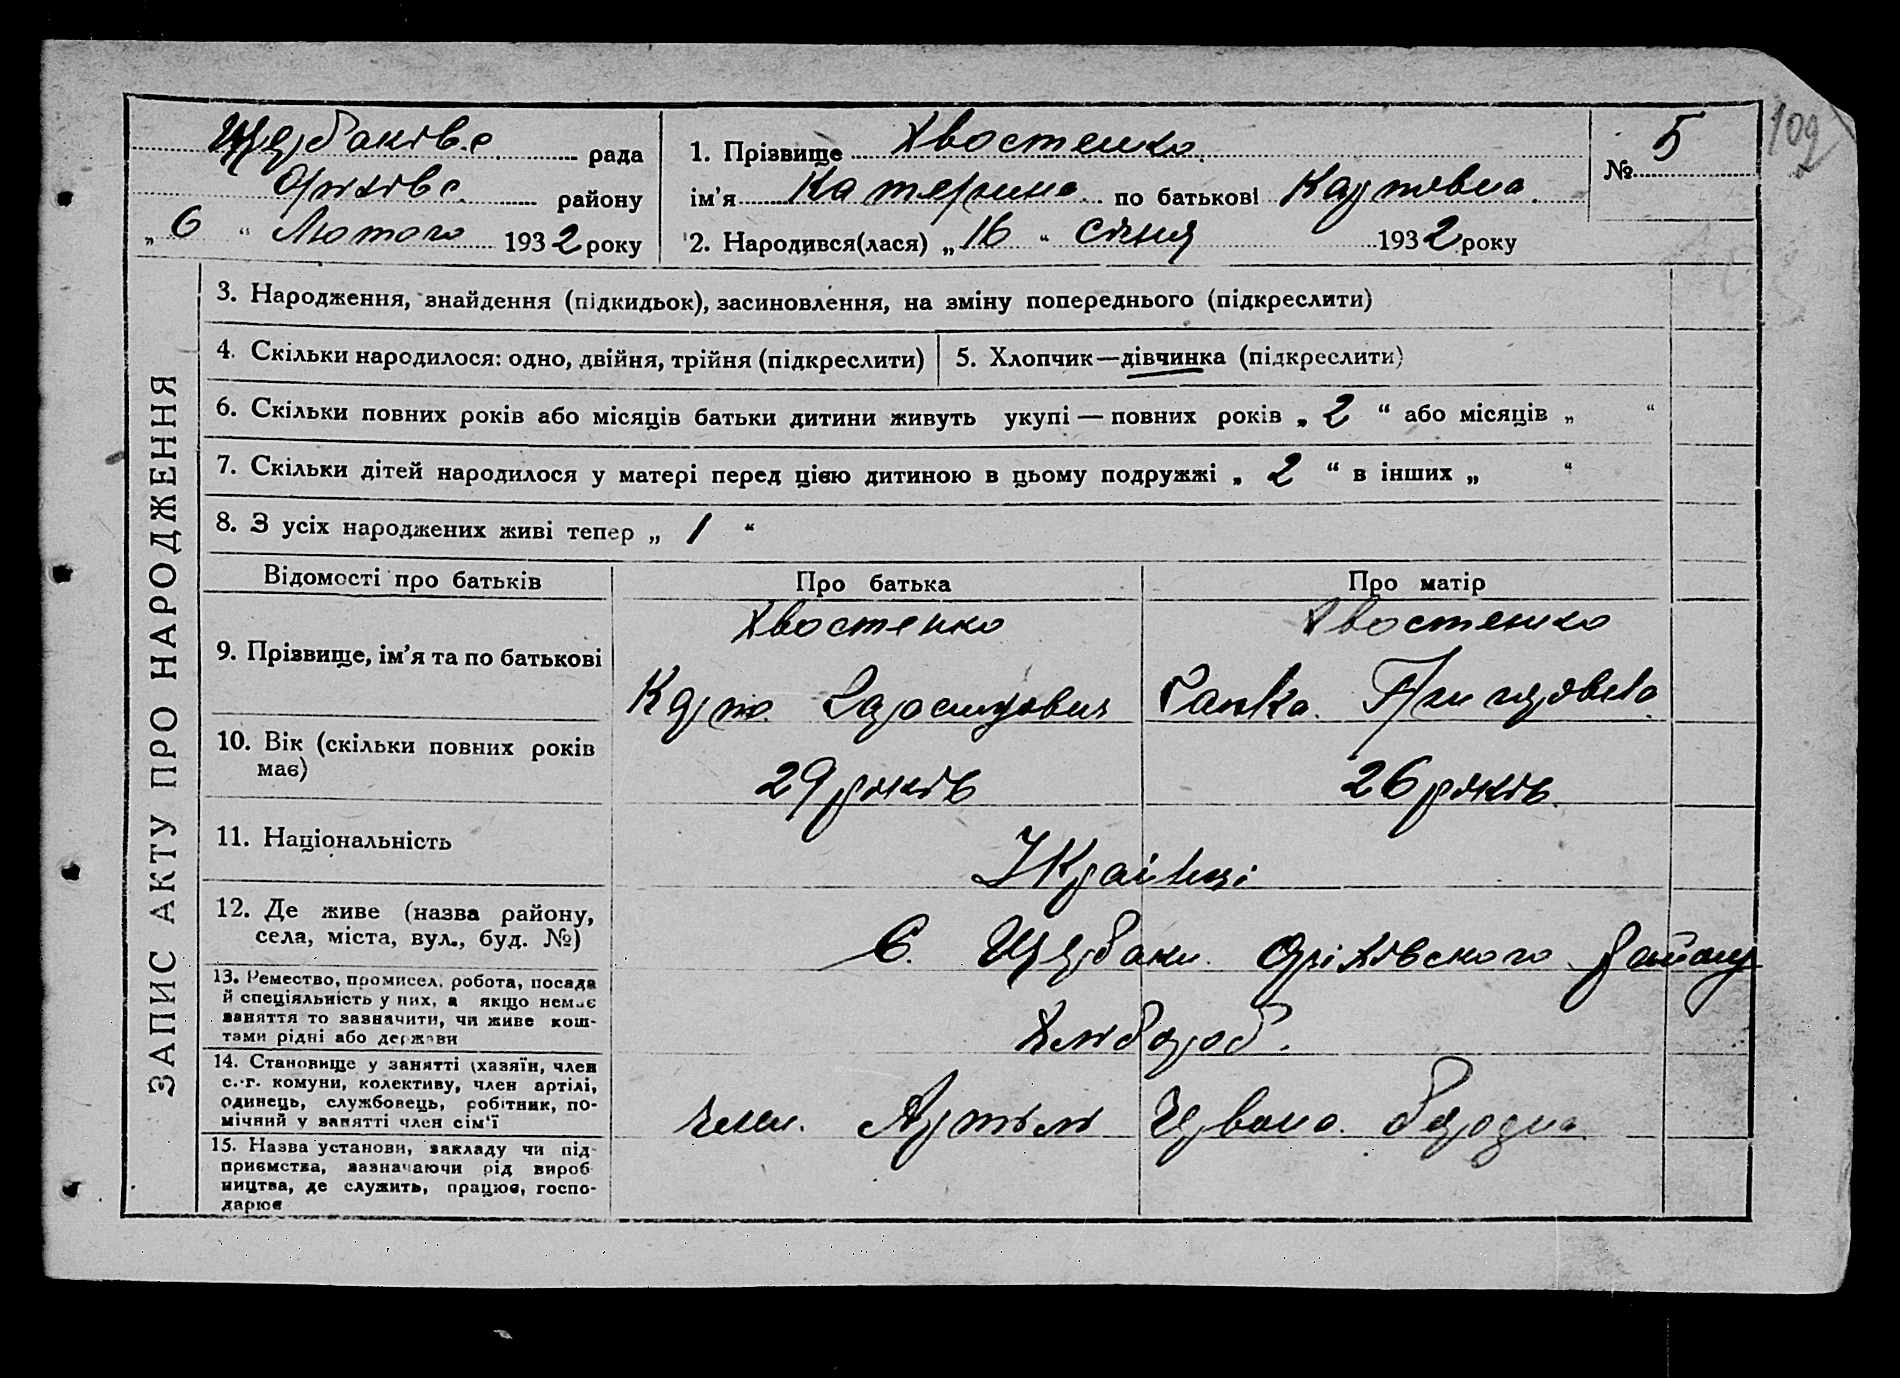 109
Щербаківс. рада
Оріхівс. району
„ 6 “ Лютого 1932 року
1. Прізвище Хвостенко
ім'я Катерина по батькові Карповна
2. Народився(лася) „ 16 “ січня 1932 року
№ 5
ЗАПИС АКТУ ПРО НАРОДЖЕННЯ
3. Народження, знайдення (підкидьок), засиновлення, на зміну попереднього (підкреслити)
4. Скільки народилося: одно, двійня, трійня (підкреслити)
5. Хлопчик—дівчинка (підкреслити)
6. Скільки повних років або місяців батьки дитини живуть укупі — повних років „ 2 “ або місяців „ “
7. Скільки дітей народилося у матері перед цією дитиною в цьому подружжі „ 2 “ в інших „ “
8. З усіх народжених живі тепер „ 1 “
Відомості про батьків
Про батька
Про матір
9. Прізвище, ім'я та по батькові
Хвостенко
Карпо
Хвостенко
Ганка
10. Вік (скільки повних років
має)
29 років
26 років
11. Національність
Українці
12. Де живе (назва району,
села, міста, вул., буд. №)
С. Щербаки Оріхівського району
13. Ремество, промисел, робота, посада
й спеціяльність у них, а якщо немає
заняття то зазначити, чи живе кош-
тами рідні або держави
Хлібороб.
14. Становище у занятті (хазяїн, член
с.-г. комуни, колективу, член артілі,
одинець, службовець, робітник, по-
мічний у занятті член сім'ї
член Артіли Червона
15. Назва установи, закладу чи під-
приємства, зазначаючи рід вироб-
ництва, де служить, працює, госпо-
дарює